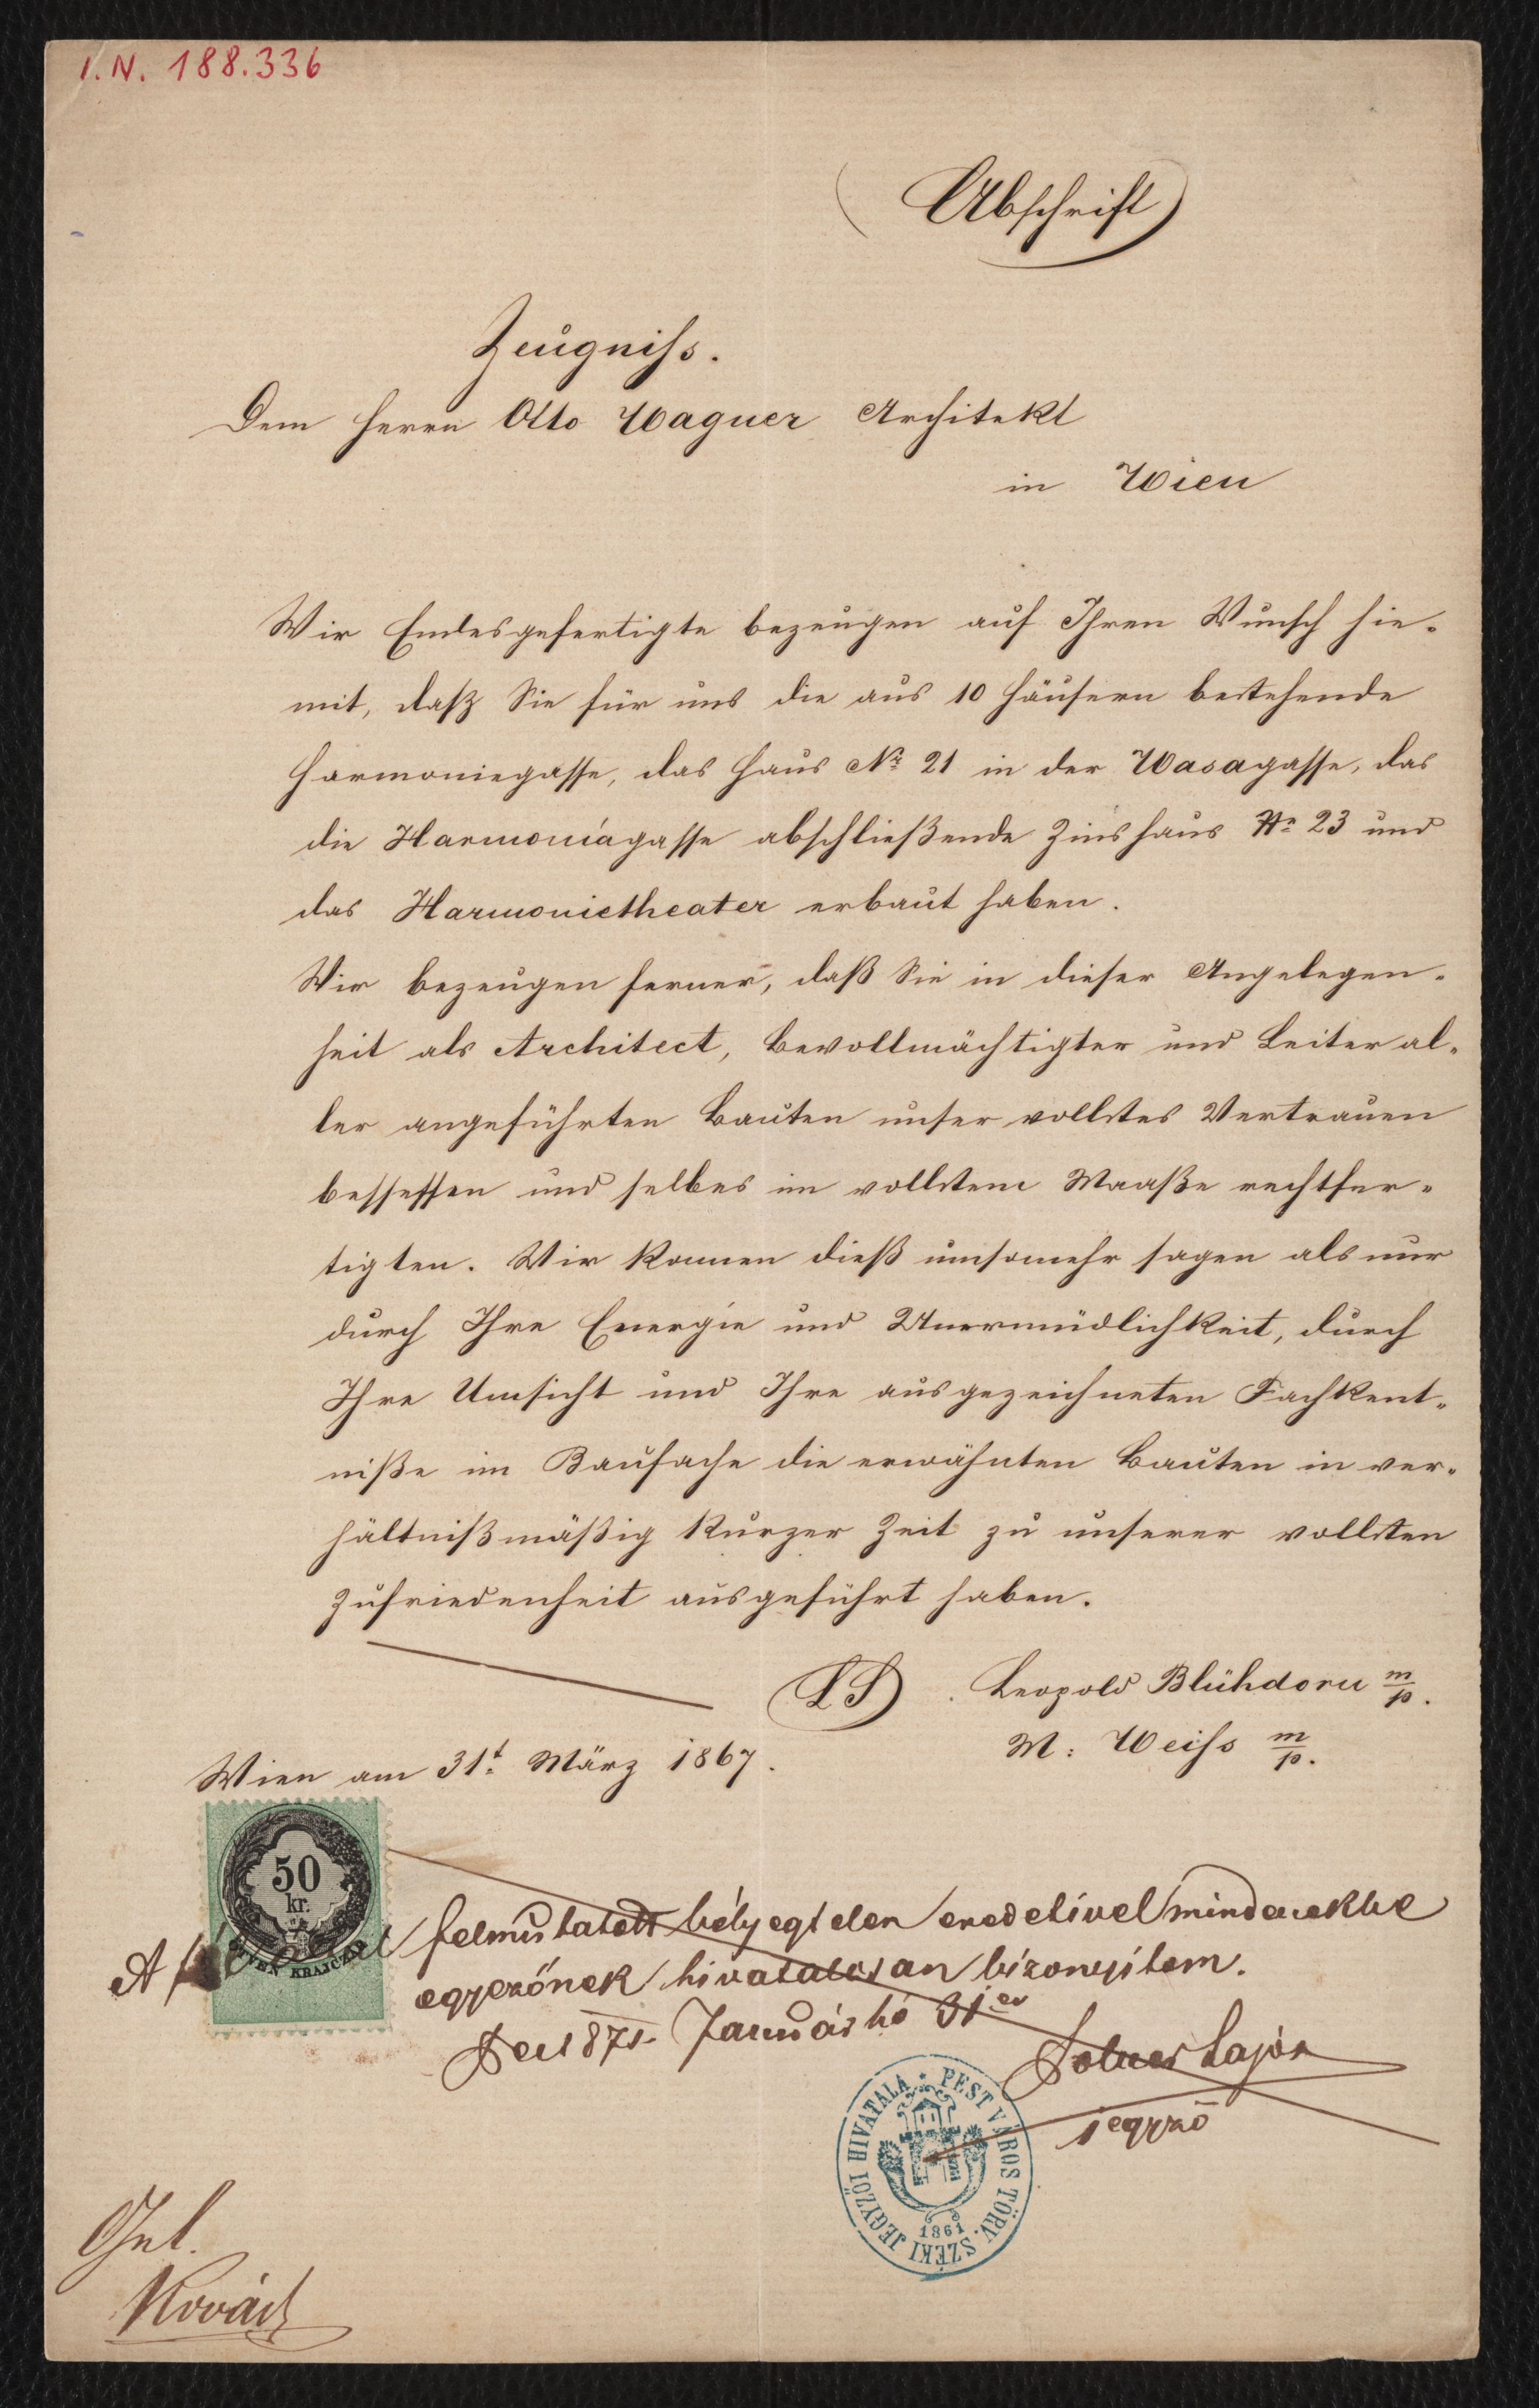 I. N. 188.336
(Abschrift)
Zeugniss.
Dem Herrn Otto Wagner Architekt
in Wien
Wir Endesgefertigte bezeugen auf Ihren Wunsch hie-
mit, daß Sie für uns die aus 10 Häusern bestehende
Harmoniegasse, das Haus Nr. 21 in der Wasagasse, das
die Harmoniagasse abschließende Zinshaus No 23 und
das Harmonietheater erbaut haben.
Wir bezeugen ferner, daß Sie in dieser Angelegen-
heit als Architect, Bevollmächtigter und Leiter al-
ler angeführten Bauten unser vollstes Vertrauen
bessessen und selbes im vollstem Maaße rechtfer-
tigten. Wir können dieß umsomehr sagen als nur
durch Ihre Energie und Unermüdlichkeit, durch
Ihre Umsicht und Ihre ausgezeichneten Fachkent-
niße im Baufache die erwähnten Bauten in ver-
hältnißmäßig kurzer Zeit zu unserer vollsten
Zufriedenheit ausgeführt haben.
LS. Leopold Blühdorn m/p.
M: Weiss m/p.
Wien am 31t. März 1867.
50
kr.
A felmutatott bélyegtelen eredetivel mindenekbe
egyezőnek hivatalosan bizonyitom.
Pest 871. Január hó 31én
Lajos
jegyző
PEST VÁROS TÖRV. SZÉKI JEGYZŐI HIVATALA
1861
Kovács